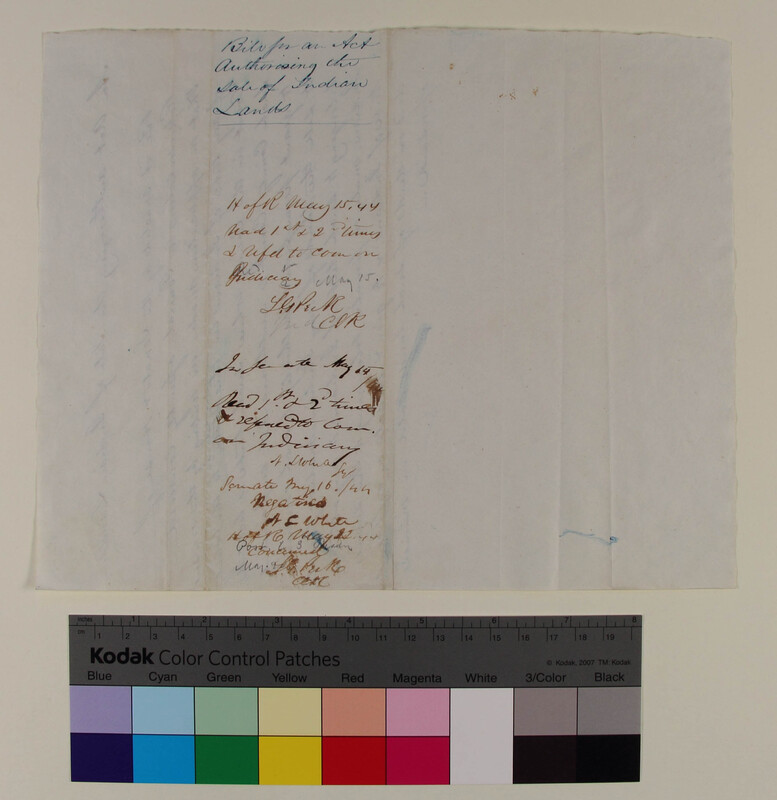 Bill for an Act
Authorising the
sale of Indian
Lands
H of R May 15. 44
Read 1st & 2d times
& refd to com on
Judiciary May 15.
Clk
In Senate May
Read 1st & 2d times
& refered to Com.
on Judiciary
Senate May 16. /44
Negatived
White
H of R, May 22 44
Concurred
May
inches 1 2 3 4 5 6 7 8
cm 1 2 3 4 5 6 7 8 9 10 11 12 13 14 15 16 17 18 19
Kodak Color Control Patches
© Kodak, 2007 TM: Kodak
Blue Cyan Green Yellow Red Magenta White 3/Color Black